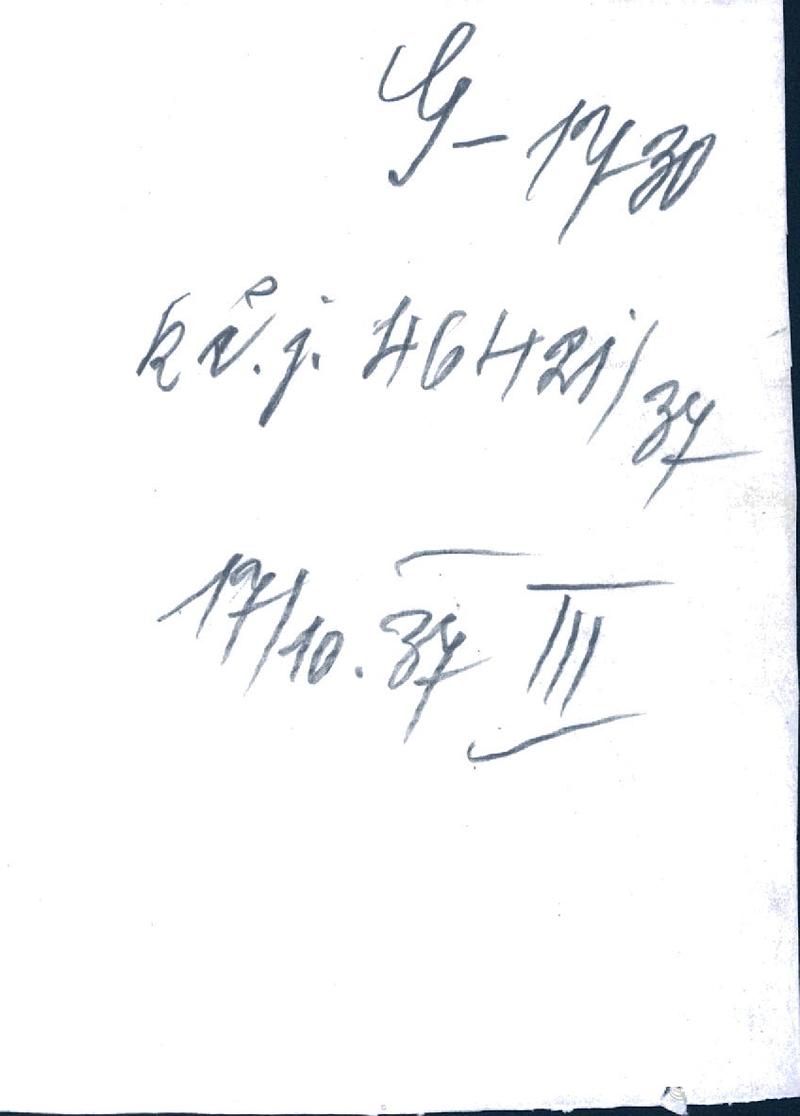 G-1730
k č.j. 46421/37
17/10.37 III